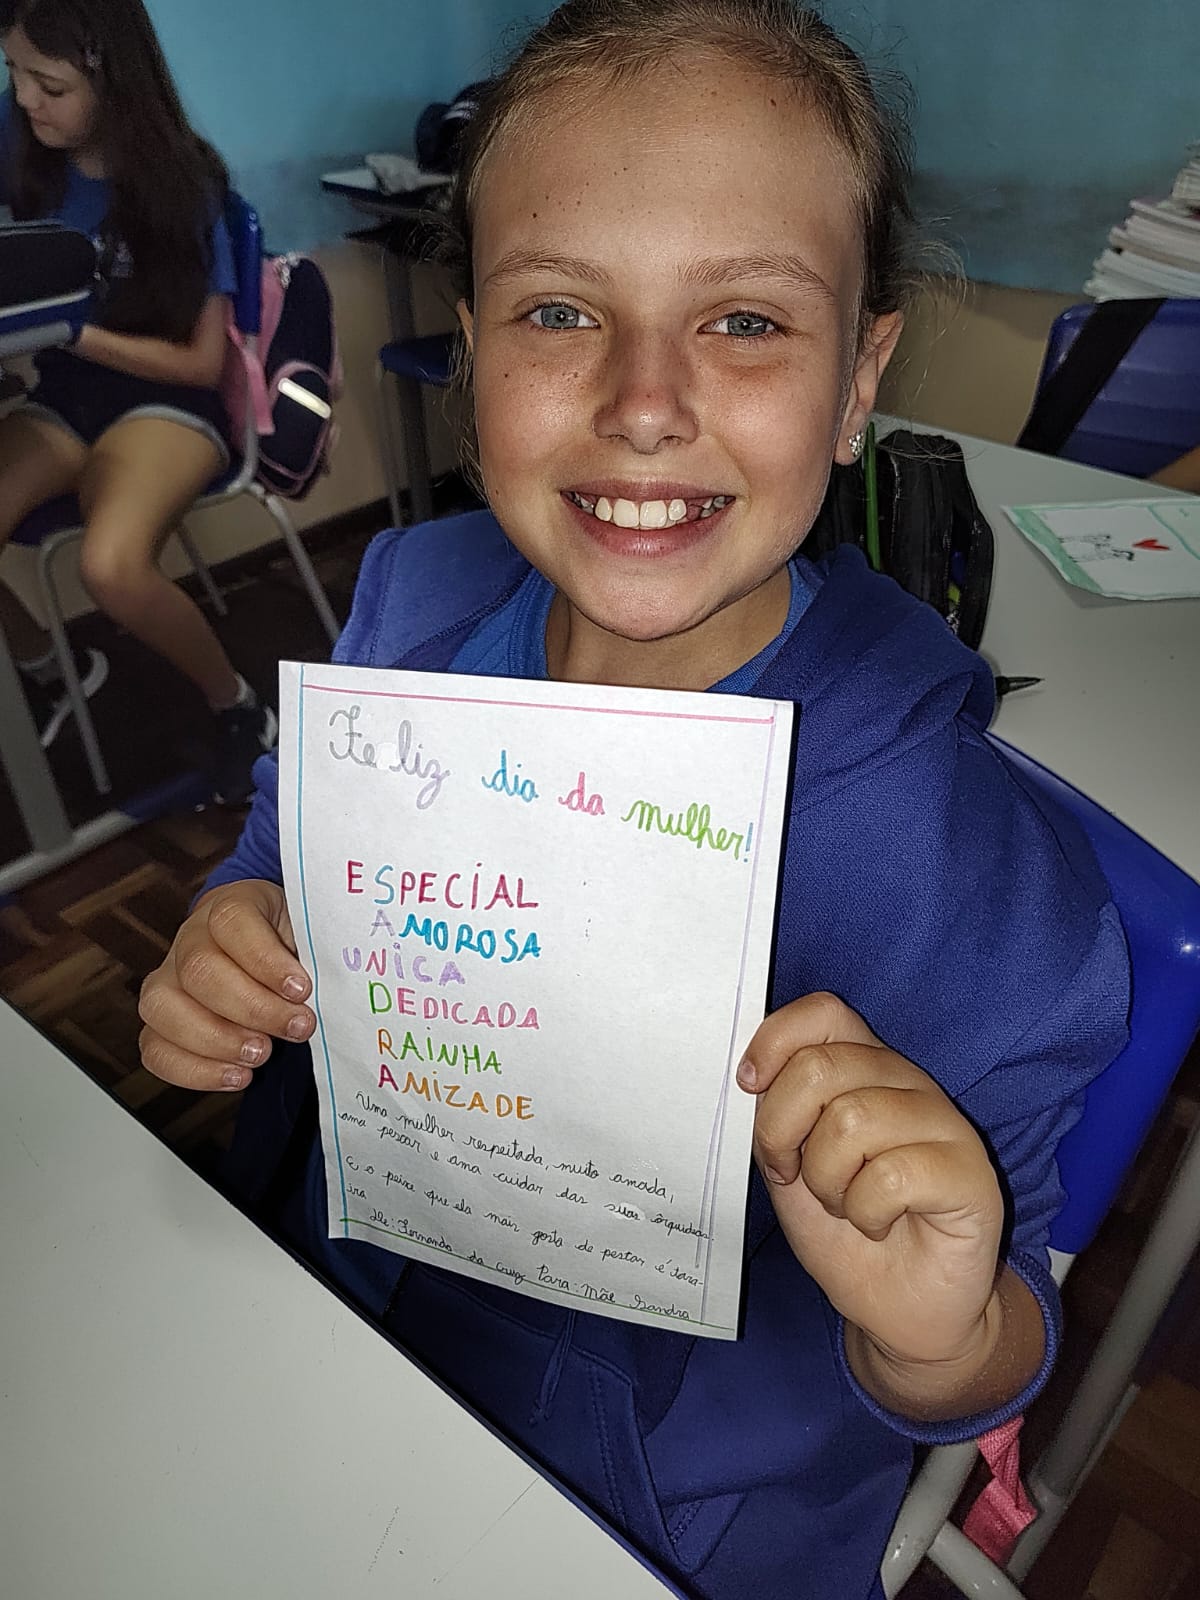 Feliz dia da mulher!
ESPECIAL
AMOROSA
UNICA
DEDICADA
RAINHA
AMIZADE
Uma mulher respeitada, muito amada,
ama pescar e ama cuidar das suas orquideas.
E o peixe que ela mais gosta de pescar é tara-
ira
De: Fernanda da Cruz Para: Mãe Sandra